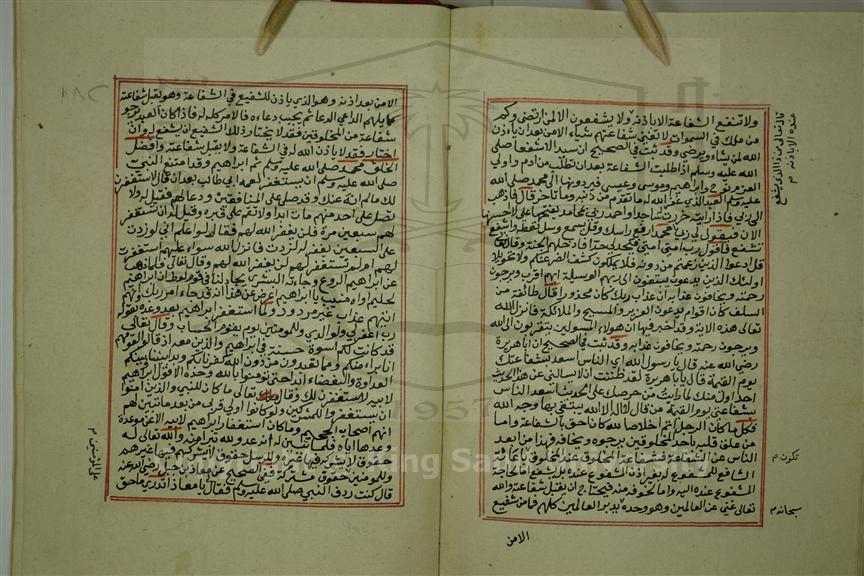 ولا تنفع الشفاعة الا باذنه ولا يشفعون الا لمن ارتضى وكم
من ملك في السموات لا تغني شفاعتهم شيئا الا من بعد ان ياذن
الله لمن يشاء ويرضى وقد ثبت في الصحيح ان سيد الشفعا صلى
الله عليه وسلم اذا طلبت الشفاعة بعد ان تطلب من ادم واولي
العزم نوح وابراهيم وموسى وعيسى فيردونها الى محمد صلى الله
عليه وسلم العبد الذي غفر الله له ما تقدم من ذنبه وما تاخر قال فاذهب
الى ربي فاذا رايته خررت ساجدا واحمد ربي بمحامد يفتحها علي لا احسنها
الان فيقول لي ربي محمد ارفع راسك وقل يسمع وسل تعطه واشفع
تشفع فاقول رب امتي امتي فيحد لي حدا فادخلهم الجنة وقال تعالى
قل ادعوا الذين زعمتم من دونه فلا يملكون كشف الضر عنكم ولا تحويلا
اولئك الذين يدعون يبتغون الى ربهم الوسيلة ايهم اقرب ويرجون
رحمته ويخافون عذابه ان عذاب ربك كان محذورا قال طائفة من
السلف كان اقوام يدعون العزير والمسيح والملائكة فانزل الله
تعالى هذه الاية وقد اخبر فيها ان هولاء المسولين يتقربون الى الله
ويرجون رحمته ويخافون عذابه وقد ثبت في الصحيح ان ابا هريرة
رضي الله عنه قال يا رسول الله اي الناس اسعد بشفاعتك
يوم القيمة قال يا ابا هريرة لقد ظننت ان لا يسالني عن هذا الحديث
احد اول منك لما رايت من حرصك على الحديث اسعد الناس
بشفاعتي يوم القيمة من قال لا اله الا الله يبتغي بها وجه الله
فكل ما كان الرجل اتم اخلاصا لله كان احق بالشفاعة واما
من علق قلبه باحد المخلوقين يرجوه ويخافه فهذا من ابعد
الناس عن الشفاعة فشفاعة المخلوق عند المخلوق باعانة
الشافع للمشفوع له بغير اذن المشفوع عنده بل يشفع اما لحاجة
المشفوع عنده اليه واما لخوفه منه فيحتاج ان يقبل شفاعته والله
تعالى غني عن العالمين وهو وحده يدبر العالمين كلهم فما من شفيع
الا من
قال تعالى من ذا الذي يشفع
عنده الا باذنه م
تكون م
سبحانه م
الا من بعد اذنه وهو الذي ياذن للشفيع في الشفاعة وهو يقبل شفاعته
كما يلهم الداعي الدعاء ثم يجيب دعاءه فالامر كله له فاذا كان العبد يرجو
شفاعة من المخلوقين فقد لا يختار ذلك الشفيع ان يشفع له وان
اختار فقد لا ياذن الله له في الشفاعة ولا يقبل شفاعته وافضل
الخلق محمد صلى الله عليه وسلم ثم ابراهيم وقد امتنع النبي
صلى الله عليه وسلم ان يستغفر لعمه ابي طالب بعد ان قال لاستغفرن
لك ما لم انه عنك وقد صلى على المنافقين ودعا لهم فقيل له ولا
تصل على احد منهم مات ابدا ولا تقم على قبره وقيل له ان تستغفر
لهم سبعين مرة فلن يغفر الله لهم فقال لو اعلم اني لو زدت
على السبعين يغفر لهم لزدت فانزل الله سواء عليهم استغفرت
لهم ام لم تستغفر لهم لن يغفر الله لهم وقال تعالى فلما ذهب
عن ابراهيم الروع وجاءته البشرى يجادلنا في قوم لوط ان ابراهيم
لحليم اواه منيب يا ابراهيم اعرض عن هذا انه قد جاء امر ربك وانهم
اتيهم عذاب غير مردود ولما استغفر ابراهيم بعد وعده بقوله
رب اغفر لي ولوالدي وللمومنين يوم يقوم الحساب وقال تعالى
قد كانت لكم اسوة حسنة في ابراهيم والذين معه اذ قالوا لقومهم
انا برآء منكم ومما تعبدون من دون الله كفرنا بكم وبدا بيننا وبينكم
العداوة والبغضاء ابدا حتى تومنوا بالله وحده الا قول ابراهيم
لابيه لاستغفرن لك وقال تعالى ما كان للنبي والذين امنوا
ان يستغفروا للمشركين ولو كانوا اولي قربى من بعد ما تبين لهم
انهم اصحاب الجحيم وما كان استغفار ابراهيم لابيه الا عن موعدة
وعدها اياه فلما تبين له انه عدو لله تبرا منه والله تعالى له
حقوق لا يشركه فيها غيره وللرسل حقوق لا يشركهم فيها غيرهم
وللمومنين حقوق مشتركة ففي الصحيح عن معاذ بن جبل رضي الله عنه
قال كنت ردف النبي صلى الله عليه وسلم فقال يا معاذ اتدري ما حق
على المومنين م
1957
King Saud University